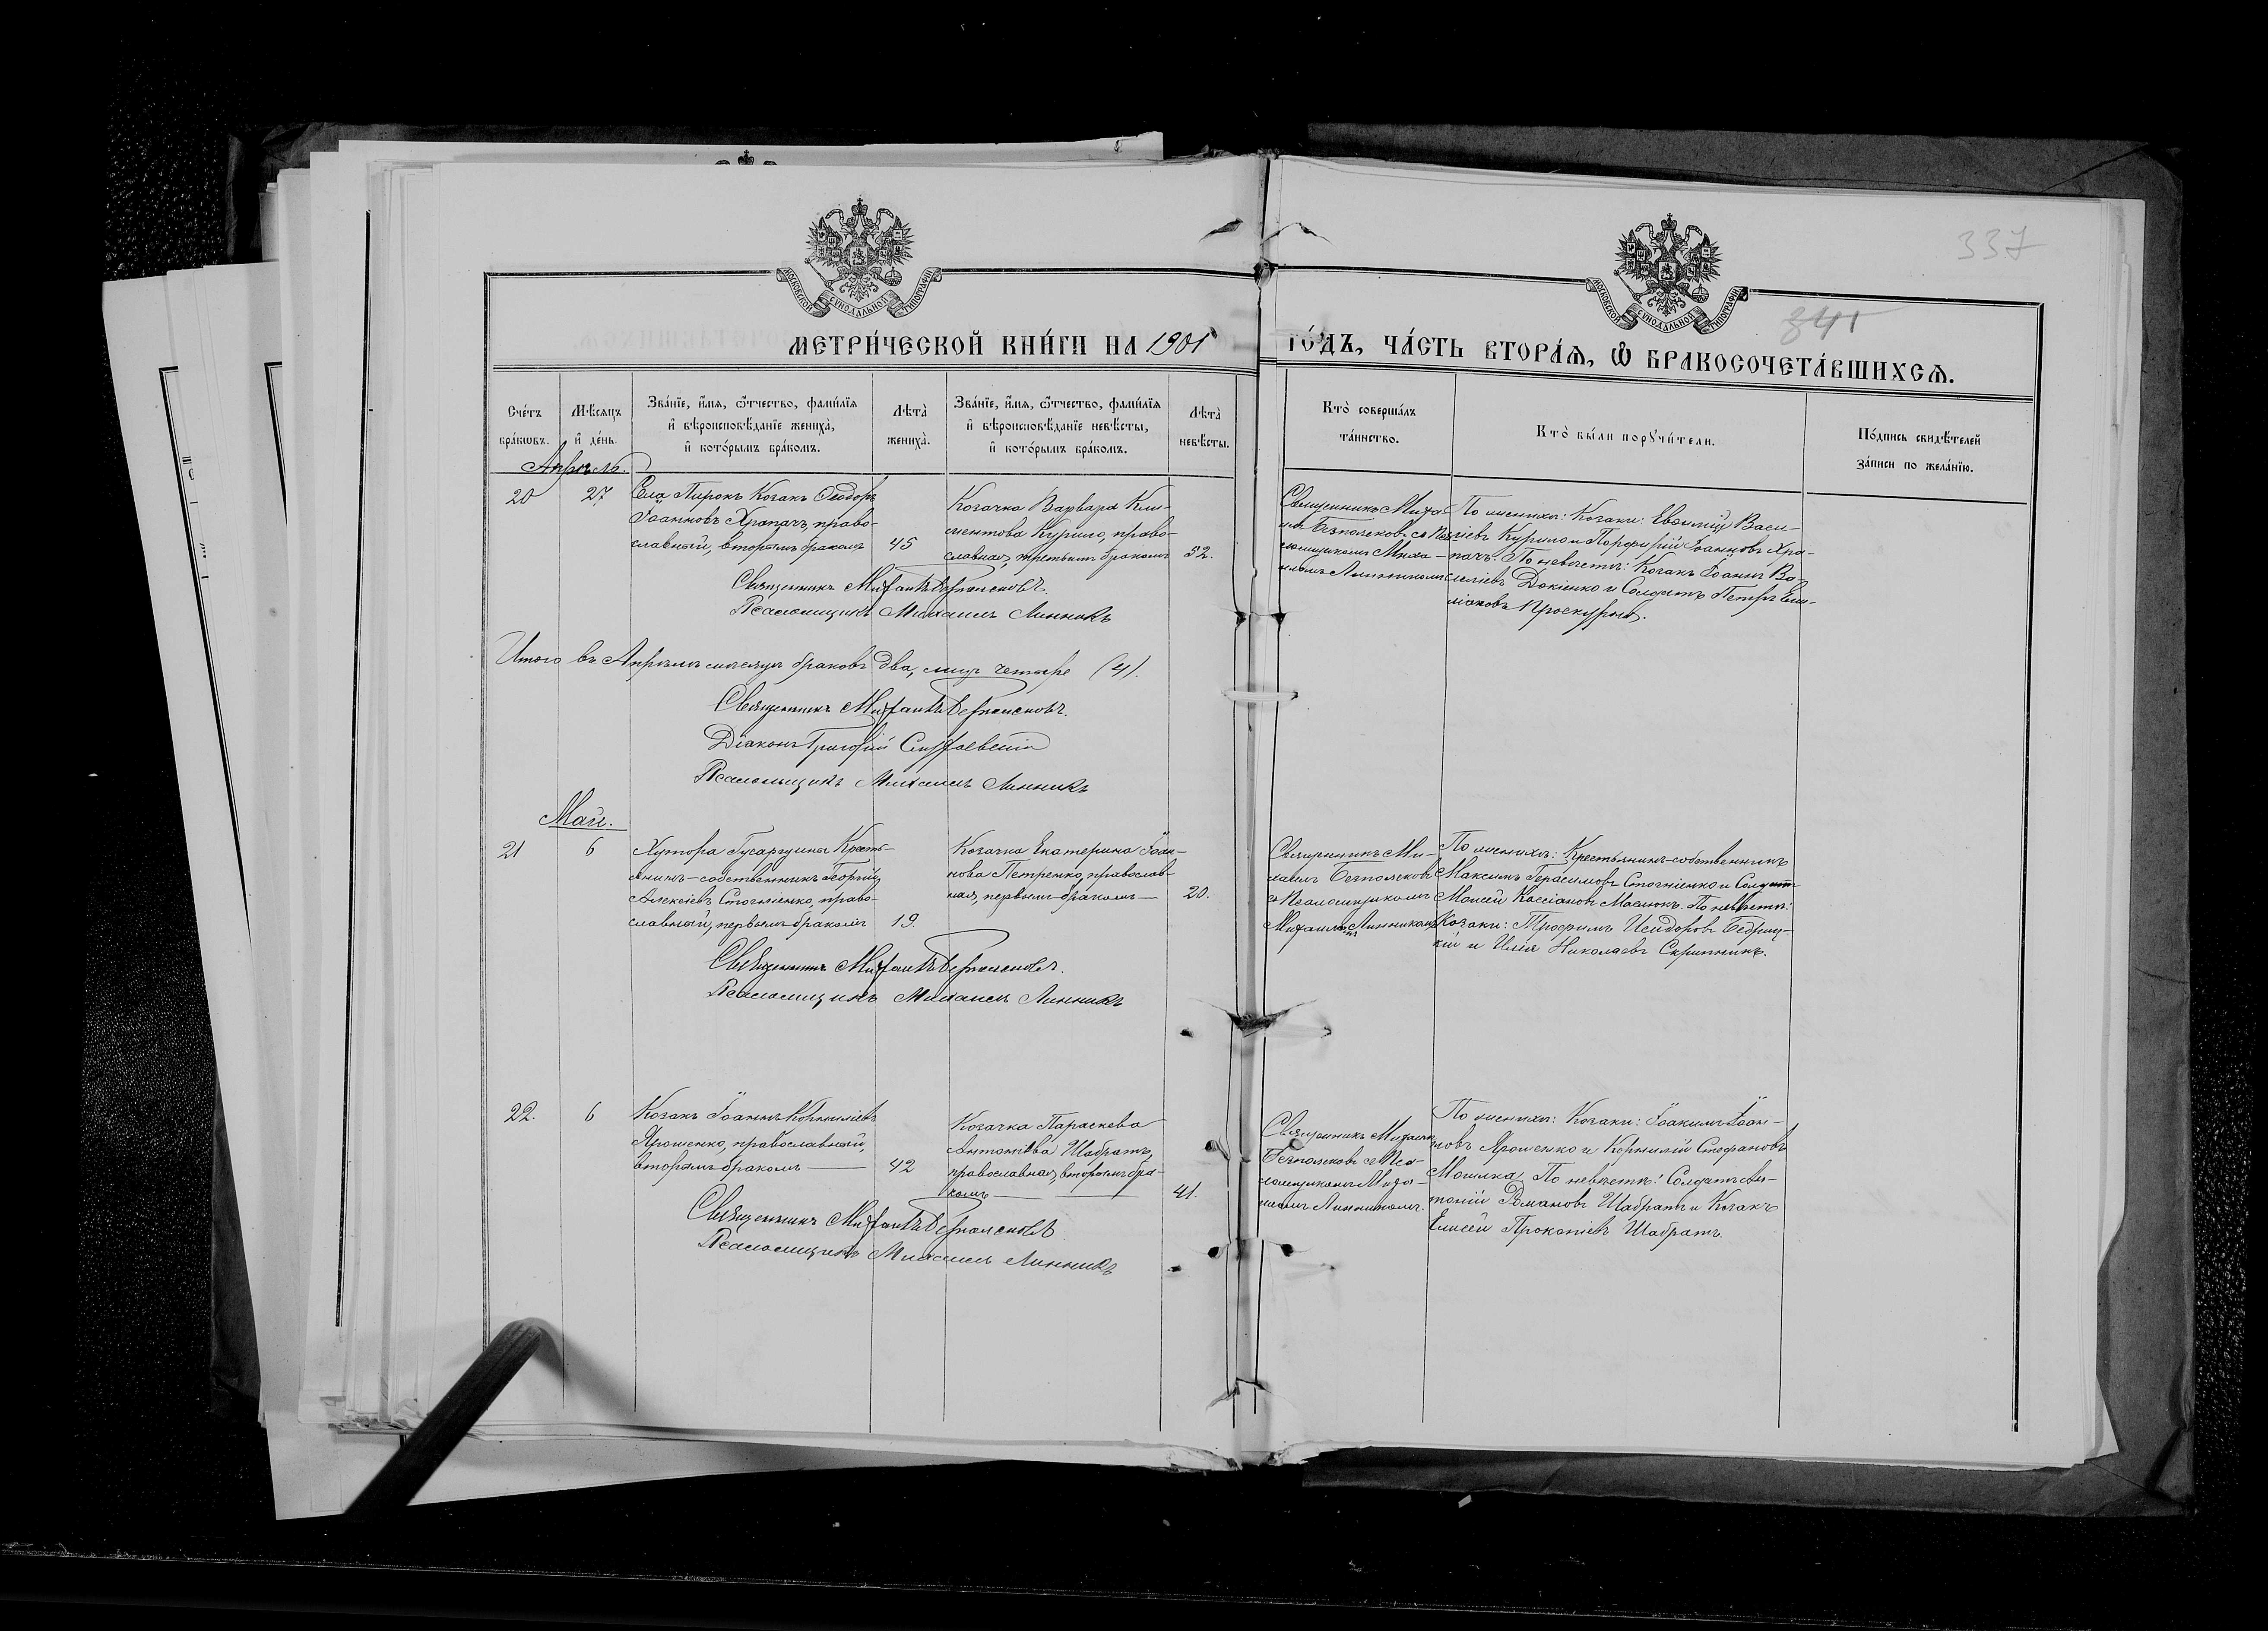 337
341
МОСКОВСКОЙ СѴНОДАЛЬНОЙ ТИПОГРАФІИ
МОСКОВСКОЙ СѴНОДАЛЬНОЙ ТИПОГРАФІИ
МЕТРИ́ЧЕСКОЙ КНИ́ГИ НА 1901 ГО́ДЪ, ЧА́СТЬ ВТОРА́Ѧ, Ѽ БРАКОСОЧЕТА́ВШИХСѦ.
Сче́тъ
бра́кѡвъ.
Мѣ́сѧцъ
и҆ де́нь.
Зва́нїе, и҆́мѧ, ѻ҆́тчество, фамѝлїѧ
и҆ вѣроисповѣ́данїе жениха̀,
и҆ кото́рымъ бра́комъ.
Лѣта̀
жениха̀.
Зва́нїе, и҆́мѧ, ѻ҆́тчество, фамѝлїѧ
и҆ вѣроисповѣ́данїе невѣ́сты,
и҆ кото́рымъ бра́комъ.
Лѣта̀
невѣ́сты.
Кто̀ соверша́лъ
та́инство.
Кто̀ бы́ли порꙋчи́тели.
По́дпись свидѣ́телей
за́писи по жела́нїю.
Апрѣль.
20
27
Села Пирокъ Козакъ Ѳеодоръ
Іоанновъ Храпачъ, право-
славный, вторымъ бракомъ
45
Козачка Варвара Кли-
ментова Курило, право-
славная, третьимъ бракомъ
52.
Священникъ Миха-
илъ Безполсковъ съ Пса-
ломщикомъ Миха-
иломъ Линникомъ
По женихѣ: Козаки: Евѳимій Васи-
ліевъ Курило и Порфирій Іоанновъ Хра-
пачъ. По невѣстѣ: Козакъ Іоаннъ Ва-
силіевъ Докіенко и Солдатъ Петръ Еми-
ліановъ Проскурня.
Священникъ Михаилъ Безполсковъ
Псаломщикъ Михаилъ Линникъ
Итого въ Апрѣлѣ мѣсяцѣ браковъ два, лицъ четыре (4).
Священникъ Михаилъ Безполсковъ.
Діаконъ Григорій
Псаломщикъ Михаилъ Линникъ
Май.
21
6
Хутора Гусаруина Кресть-
янинъ-собственникъ Георгій
Алексіевъ Стогніенко, право-
славный, первымъ бракомъ
19.
Козачка Екатерина Іоан-
нова Петренко, православ-
ная, первымъ бракомъ
20.
Священникъ Ми-
хаилъ Безполсковъ
съ Псаломщикомъ
Михаиломъ Линникомъ
По женихѣ: Крестьянинъ-собственникъ
Максимъ Герасимовъ Стогніенко и Солдатъ
Моисей Кассіановъ Маслюкъ. По невѣстѣ:
Козаки: Трофимъ Исидоровъ Бедриц-
кій и Илія Николаевъ Скрипникъ.
Священникъ Михаилъ Безполсковъ.
Псаломщикъ Михаилъ Линникъ
22.
6
Козакъ Іоаннъ Корниліевъ
Ярошенко, православный,
вторымъ бракомъ
42
Козачка Параскева
Антоніева Шабратъ,
православная, вторымъ бра-
комъ
41.
Священникъ Михаилъ
Безполсковъ съ Пса-
ломщикомъ Миха-
иломъ Линникомъ.
По женихѣ: Козаки: Іоакимъ Іоан-
новъ Ярошенко и Корнилій Стефановъ
Могилка. По невѣстѣ: Солдатъ Ан-
тоній Романовъ Шабратъ и Козакъ
Елисей Прокопіевъ Шабратъ.
Священникъ Михаилъ Безполсковъ
Псаломщикъ Михаилъ Линникъ